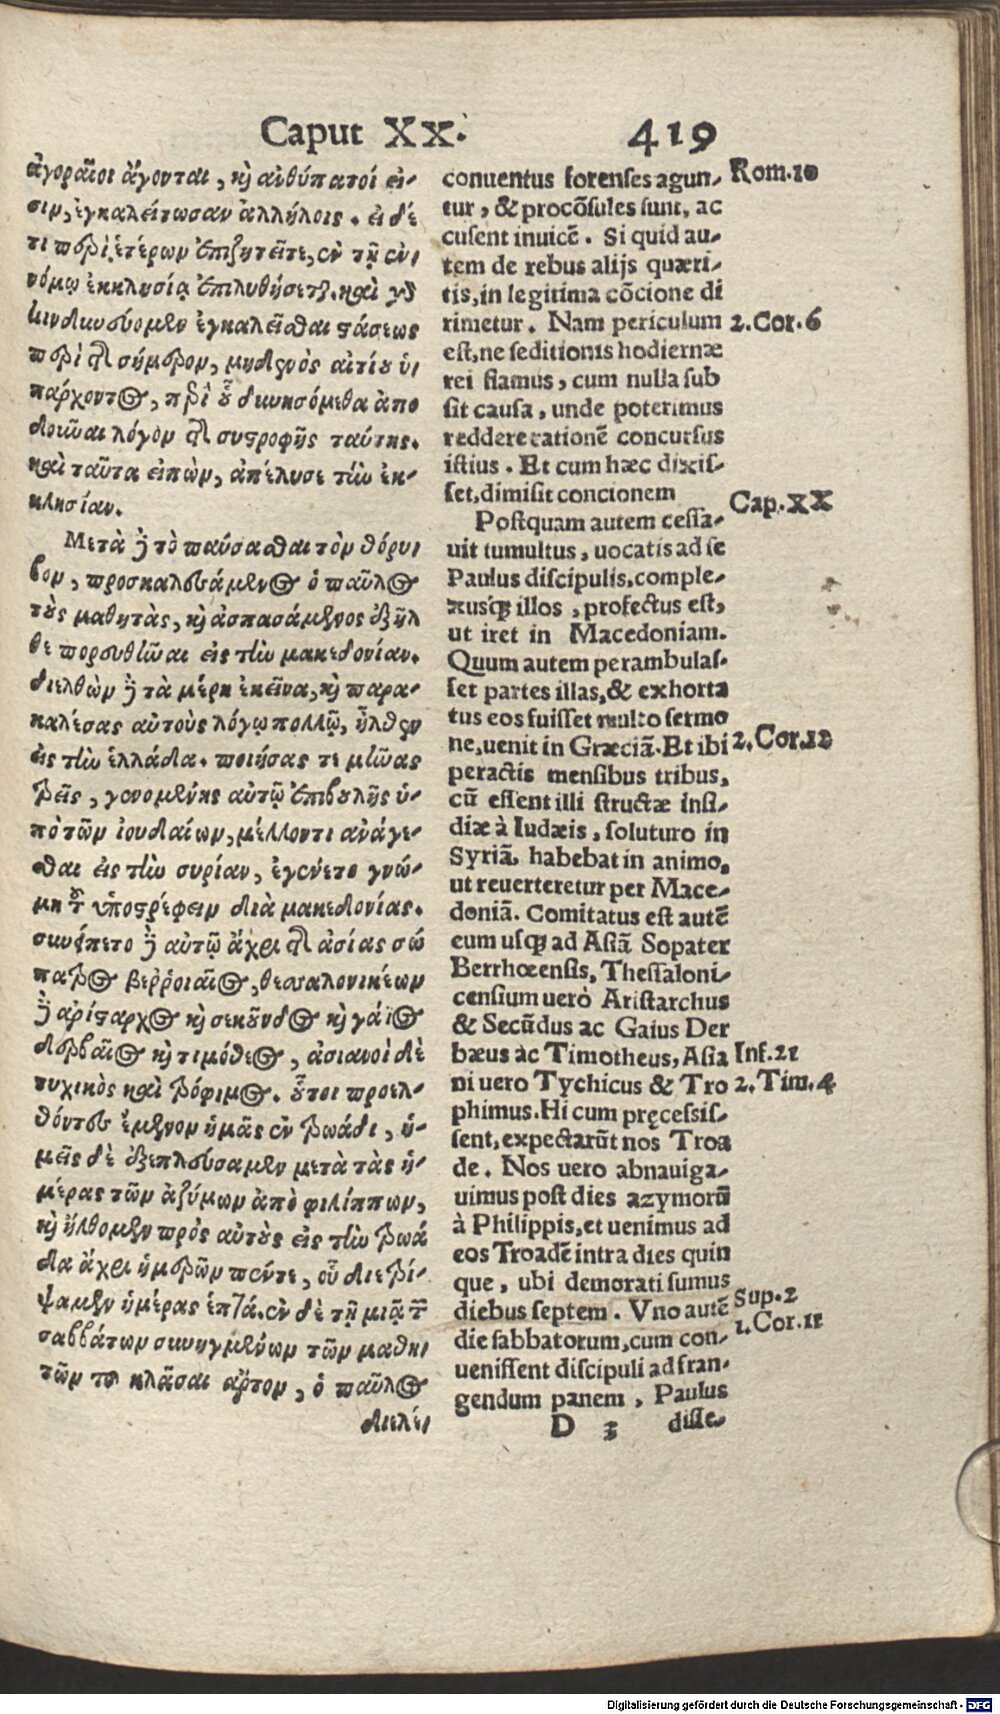 Caput XX.
419
ἀγοραῖοι ἄγονται, κὶ ἀνθύπατοί εἰ-
σιμ, ἐγκαλείτωσαν ἀλλήλοις. εἰ δέ
τι περὶ ἑτέρωμ ἐπιζητεῖτε, ἐν τῇ ἐν
νόμῳ ἐκκλησίᾳ ἐπιλυθήσεται. καὶ γὰρ
κινδυνεύομεν ἐγκαλεῖσθαι στάσεως
περὶ τῆς σήμερομ, μηδενὸς αἰτίου ὑ
πάρχοντος, περὶ οὗ δυνησόμεθα ἀπο
δοῦναι λόγομ τῆς συστροφῆς ταύτης.
καὶ ταῦτα εἰπὼμ, ἀπέλυσε τὴν ἐκ-
κλησίαν.
Μετὰ δὲ τὸ παύσασθαι τὸμ θόρυ
βομ, προσκαλεσάμενος ὁ παῦλος
τοὺς μαθητὰς, κὶ ἀσπασάμενος ἐξῆλ
θε πορευθῆναι εἰς τὴν μακεδονίαν.
διελθὼμ δὲ τὰ μέρη ἐκεῖνα, κὶ παρα-
καλέσας αὐτοὺς λόγῳ πολλῷ, ἦλθεν
εἰς τὴν ἑλλάδα. ποιήσας τε μῆνας
τρεῖς, γενομένης αὐτῷ ἐπιβουλῆς ὑ-
πὸ τῶμ ἰουδαίωμ, μέλλοντι ἀνάγε-
σθαι εἰς τὴν συρίαν, ἐγένετο γνώ-
μη τοῦ ὑποστρέφειμ διὰ μακεδονίας.
συνείπετο δὲ αὐτῷ ἄχρι τῆς ἀσίας σώ
πατρος βεῤῥοιαῖος, θεσσαλονικέωμ
δὲ ἀρίσταρχος κὶ σεκοῦνδος κὶ γάϊος
δερβαῖος κὶ τιμόθεος, ἀσιανοὶ δὲ
τυχικὸς καὶ τρόφιμος. οὗτοι προελ-
θόντες ἔμενομ ἡμᾶς ἐν τρωάδι, ἡ-
μεῖς δὲ ἐξεπλεύσαμεν μετὰ τὰς ἡ-
μέρας τῶμ ἀζύμωμ ἀπὸ φιλίππωμ,
κὶ ἤλθομεν πρὸς αὐτοὺς εἰς τὴν τρωά
δα ἄχρι ἡμερῶμ πέντε, οὗ διετρί-
ψαμεν ἡμέρας ἑπτά. ἐν δὲ τῇ μιᾷ τῶν
σαββάτωμ συνηγμένωμ τῶμ μαθη
τῶμ τοῦ κλᾶσαι ἄρτομ, ὁ παῦλος
διελέ
conuentus forenses agun-
tur, & procõsules sunt, ac
cusent inuicẽ. Si quid au-
tem de rebus alijs quæri-
tis, in legitima cõcione di
rimetur. Nam periculum
est, ne seditionis hodiernæ
rei fiamus, cum nulla sub
sit causa, unde poterimus
reddere rationẽ concursus
istius. Et cum hæc dixis-
set, dimisit concionem
Postquam autem cessa-
uit tumultus, uocatis ad se
Paulus discipulis, comple-
xusq́ illos, profectus est,
ut iret in Macedoniam.
Quum autem perambulas-
set partes illas, & exhorta
tus eos fuisset multo sermo
ne, uenit in Græciã. Et ibi
peractis mensibus tribus,
cũ essent illi structæ insi-
diæ à Iudæis, soluturo in
Syriã, habebat in animo,
ut reuerteretur per Mace-
doniã. Comitatus est autẽ
eum usq́ ad Asiã Sopater
Berrhœensis, Thessaloni-
censium uerò Aristarchus
& Secũdus ac Gaius Der
bæus ac Timotheus, Asia
ni uero Tychicus & Tro
phimus. Hi cum pręcessis-
sent, expectarũt nos Troa
de. Nos uero abnauiga-
uimus post dies azymorũ
à Philippis, et uenimus ad
eos Troadẽ intra dies quin
que, ubi demorati sumus
diebus septem. Vno autẽ
die sabbatorum, cum con-
uenissent discipuli ad fran-
gendum panem, Paulus
D 2 disse-
Rom.10
2.Cor.6
Cap.XX
2.Cor.12
Inf.21
2.Tim.4
Sup.2
1.Cor.11
Digitalisierung gefördert durch die Deutsche Forschungsgemeinschaft - DFG